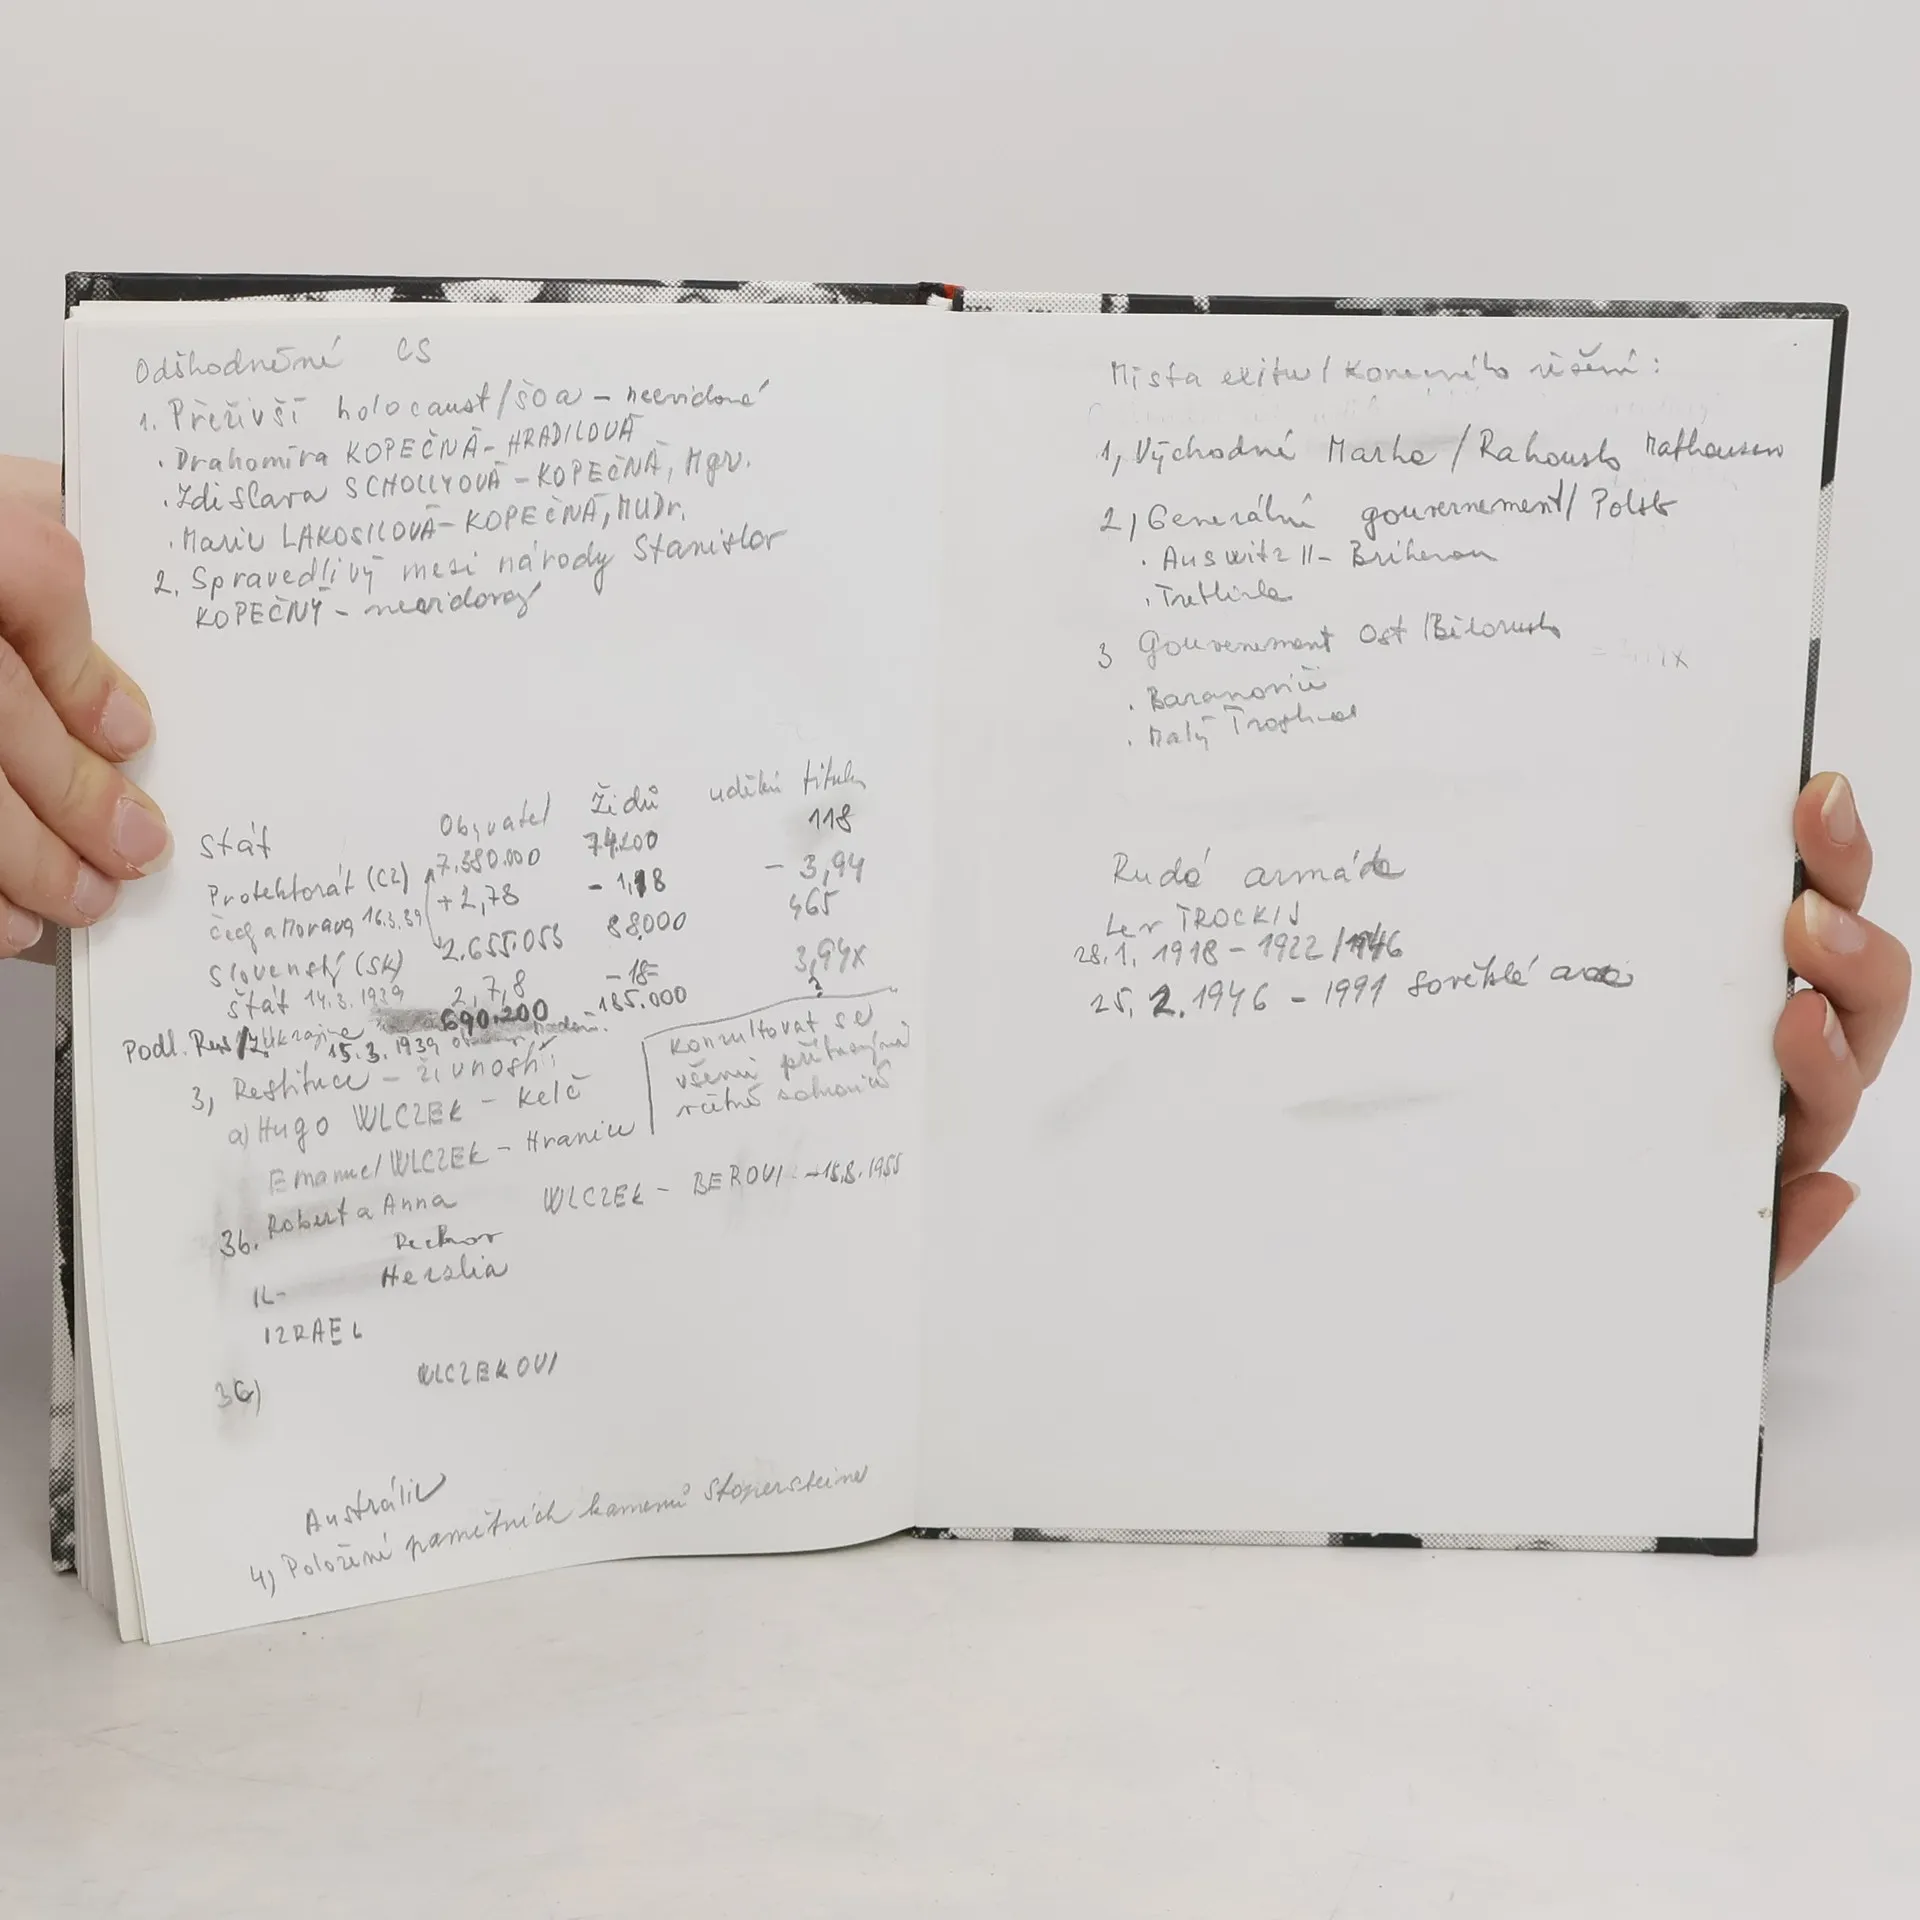 Odškodnění CS
1. Přeživší holocaust/šoa – neevidované
. Drahomíra KOPEČNÁ – HRADILOVÁ
. Zdislava SCHOLLYOVÁ – KOPEČNÁ, Mgr.
. Marie LAKOSILOVÁ – KOPEČNÁ, MUDr.
2. Spravedlivý mezi národy Stanislav
KOPEČNÝ – neevidovaný
Stát Obyvatel Židů udělení titulu
Protektorát (CZ) 7.380.000 74.200 118
Čech a Morava 16.3.39 +2,78 – 1,18 – 3,94
Slovenský (SK) 2.655.053 88.000 465
Štát 14.3.1939 2,7,8 –18– 3,94x
Podl. Rus/Z. Ukrajina 690.200 185.000 ?
15.3.1939
3, Restituce – živnosti:
a) Hugo WLCZEK – Kelč
Emanuel WLCZEK – Hranice
Konzultovat se
všemi
včetně
3b. Robert a Anna WLCZEK – BEROVI – 15.8.1955
Herzlia
IL–
IZRAEL
WLCZEKOVI
Austrálie
4) Položení pamětních kamenů Stopersteine
Místa exitu / Konečného řešení:
1, Východní Marka / Rakousko Mathausen
2, Generální gouvernement / Polsko
. Auswitz II –
. Treblinka
3 Gouvenement Ost / Bělorusko
. Baranoviči
. Malý
Rudá armáda
Lev TROCKIJ
28.1.1918 – 1922 / 1946
25.2.1946 – 1991 Sovětská